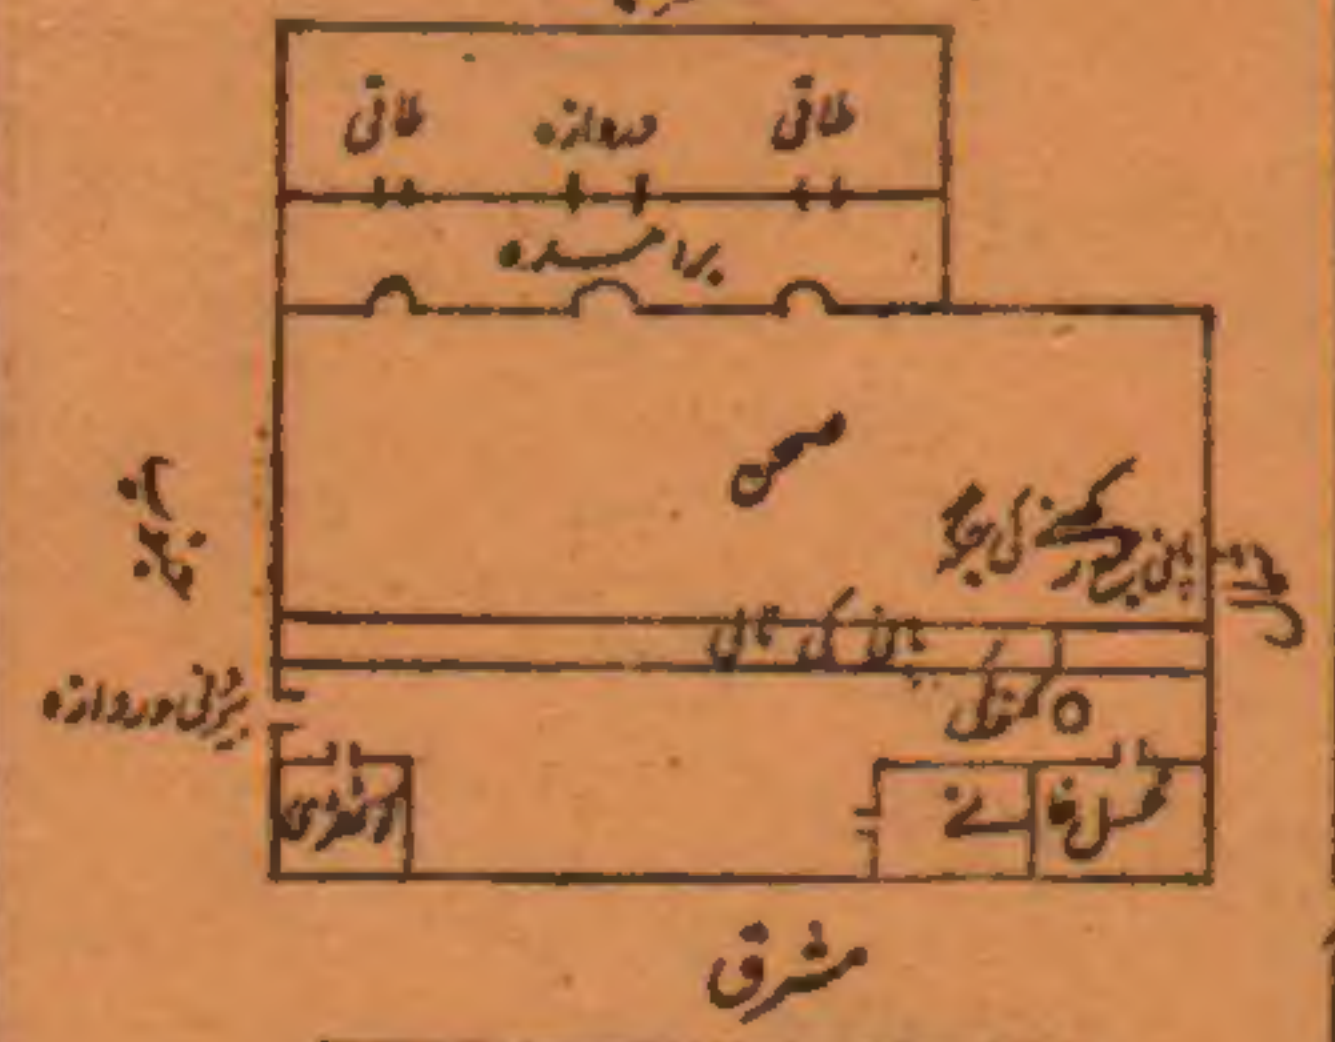 طاقی دروازہ طاقی
برامدہ
صحن
پانی بھر رکھنے کی جگہ
پانی کی نالی
جنوب
بیرونی دروازہ
کوٹھڑی
غسل خانے
مشرق